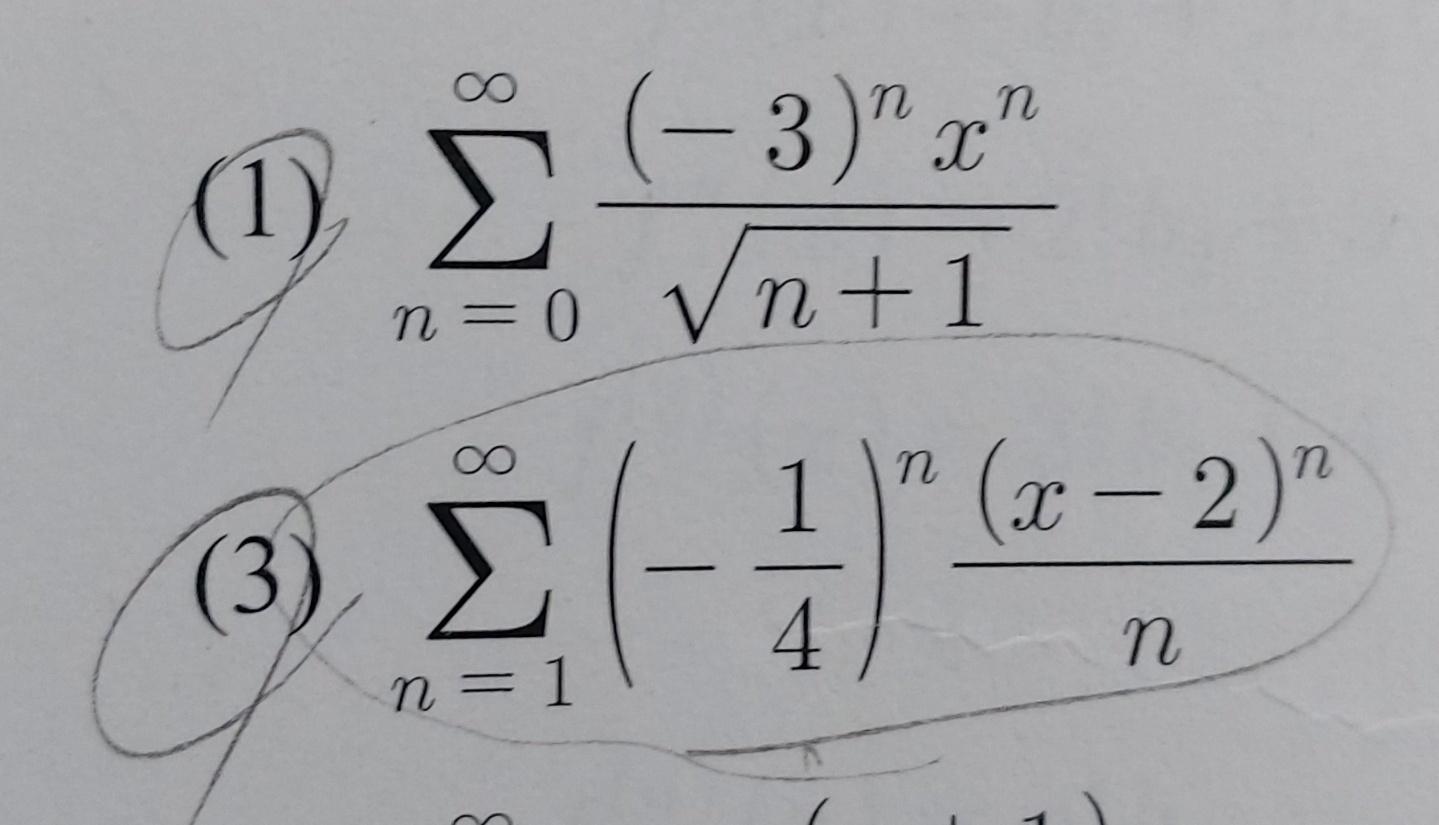 (1) $\sum_{n=0}^{\infty} \frac{(-3)^n x^n}{\sqrt{n+1}}$
(3) $\sum_{n=1}^{\infty} \left(-\frac{1}{4}\right)^n \frac{(x-2)^n}{n}$